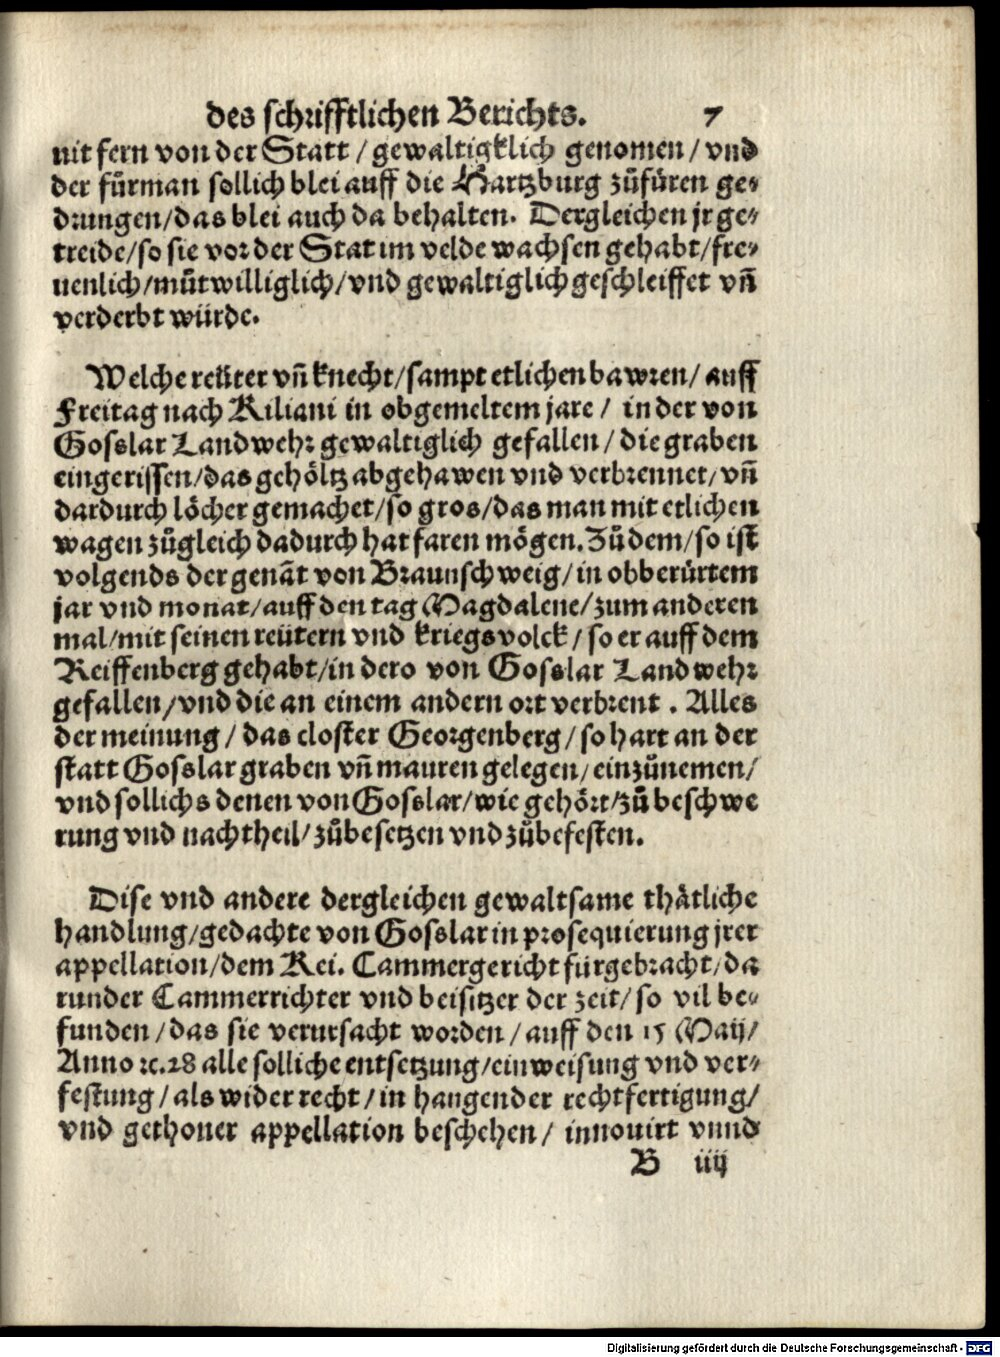 des schrifftlichen Berichts. 7
nit fern von der Statt / gewaltigklich genomen / vnd
der fůrman sollich blei auff die Hartzburg zůfüren ge-
drungen/das blei auch da behalten. Dergleichen jr ge-
treide/so sie vor der Stat im velde wachsen gehabt/fre-
uenlich/můtwilliglich/vnd gewaltiglich geschleiffet vñ
verderbt würde.
Welche reüter vñ knecht/sampt etlichen bawren/ auff
Freitag nach Kiliani in obgemeltem jare / in der von
Gosslar Landwehr gewaltiglich gefallen / die graben
eingerissen/das gehöltz abgehawen vnd verbrennet/ vñ
dardurch löcher gemachet/so gros/das man mit etlichen
wagen zůgleich dadurch hat faren mögen. Zů dem/so ist
volgends der genãt von Braunschweig/in obberürtem
jar vnd monat/auff den tag Magdalene/zum anderen
mal/mit seinen reütern vnd kriegsvolck / so er auff dem
Reiffenberg gehabt/in dero von Gosslar Landwehr
gefallen/vnd die an einem andern ort verbrent . Alles
der meinung / das closter Georgenberg/so hart an der
statt Gosslar graben vñ mauren gelegen/einzůnemen/
vnd sollichs denen von Gosslar/wie gehört/zů beschwe
rung vnd nachtheil/zůbesetzen vnd zůbefesten.
Dise vnd andere dergleichen gewaltsame thätliche
handlung/gedachte von Gosslar in prosequierung jrer
appellation/dem Kei. Cammergericht fürgebracht/da
runder Cammerrichter vnd beisitzer der zeit/ so vil be-
funden/das sie verursacht worden / auff den 15 Maij/
Anno ꝛc.28 alle solliche entsetzung/einweisung vnd ver-
festung / als wider recht / in hangender rechtfertigung/
vnd gethoner appellation beschehen/ innouirt vnnd
B iiij
Digitalisierung gefördert durch die Deutsche Forschungsgemeinschaft - DFG